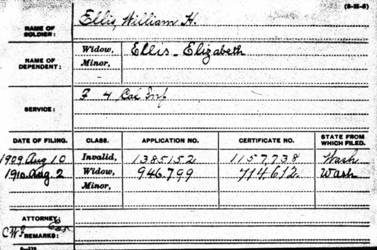 (3-25-5)
NAME OF SOLDIER: Ellis, William H.
NAME OF DEPENDENT: Widow, Ellis - Elizabeth
Minor,
SERVICE: F 4 Cal Inf
DATE OF FILING. CLASS. APPLICATION NO. CERTIFICATE NO. STATE FROM WHICH FILED.
1909 Aug 10 Invalid, 1385152 1157738 Wash
1910 Aug. 2 Widow, 946.799 714.612. Wash
Minor,
ATTORNEY:
REMARKS: